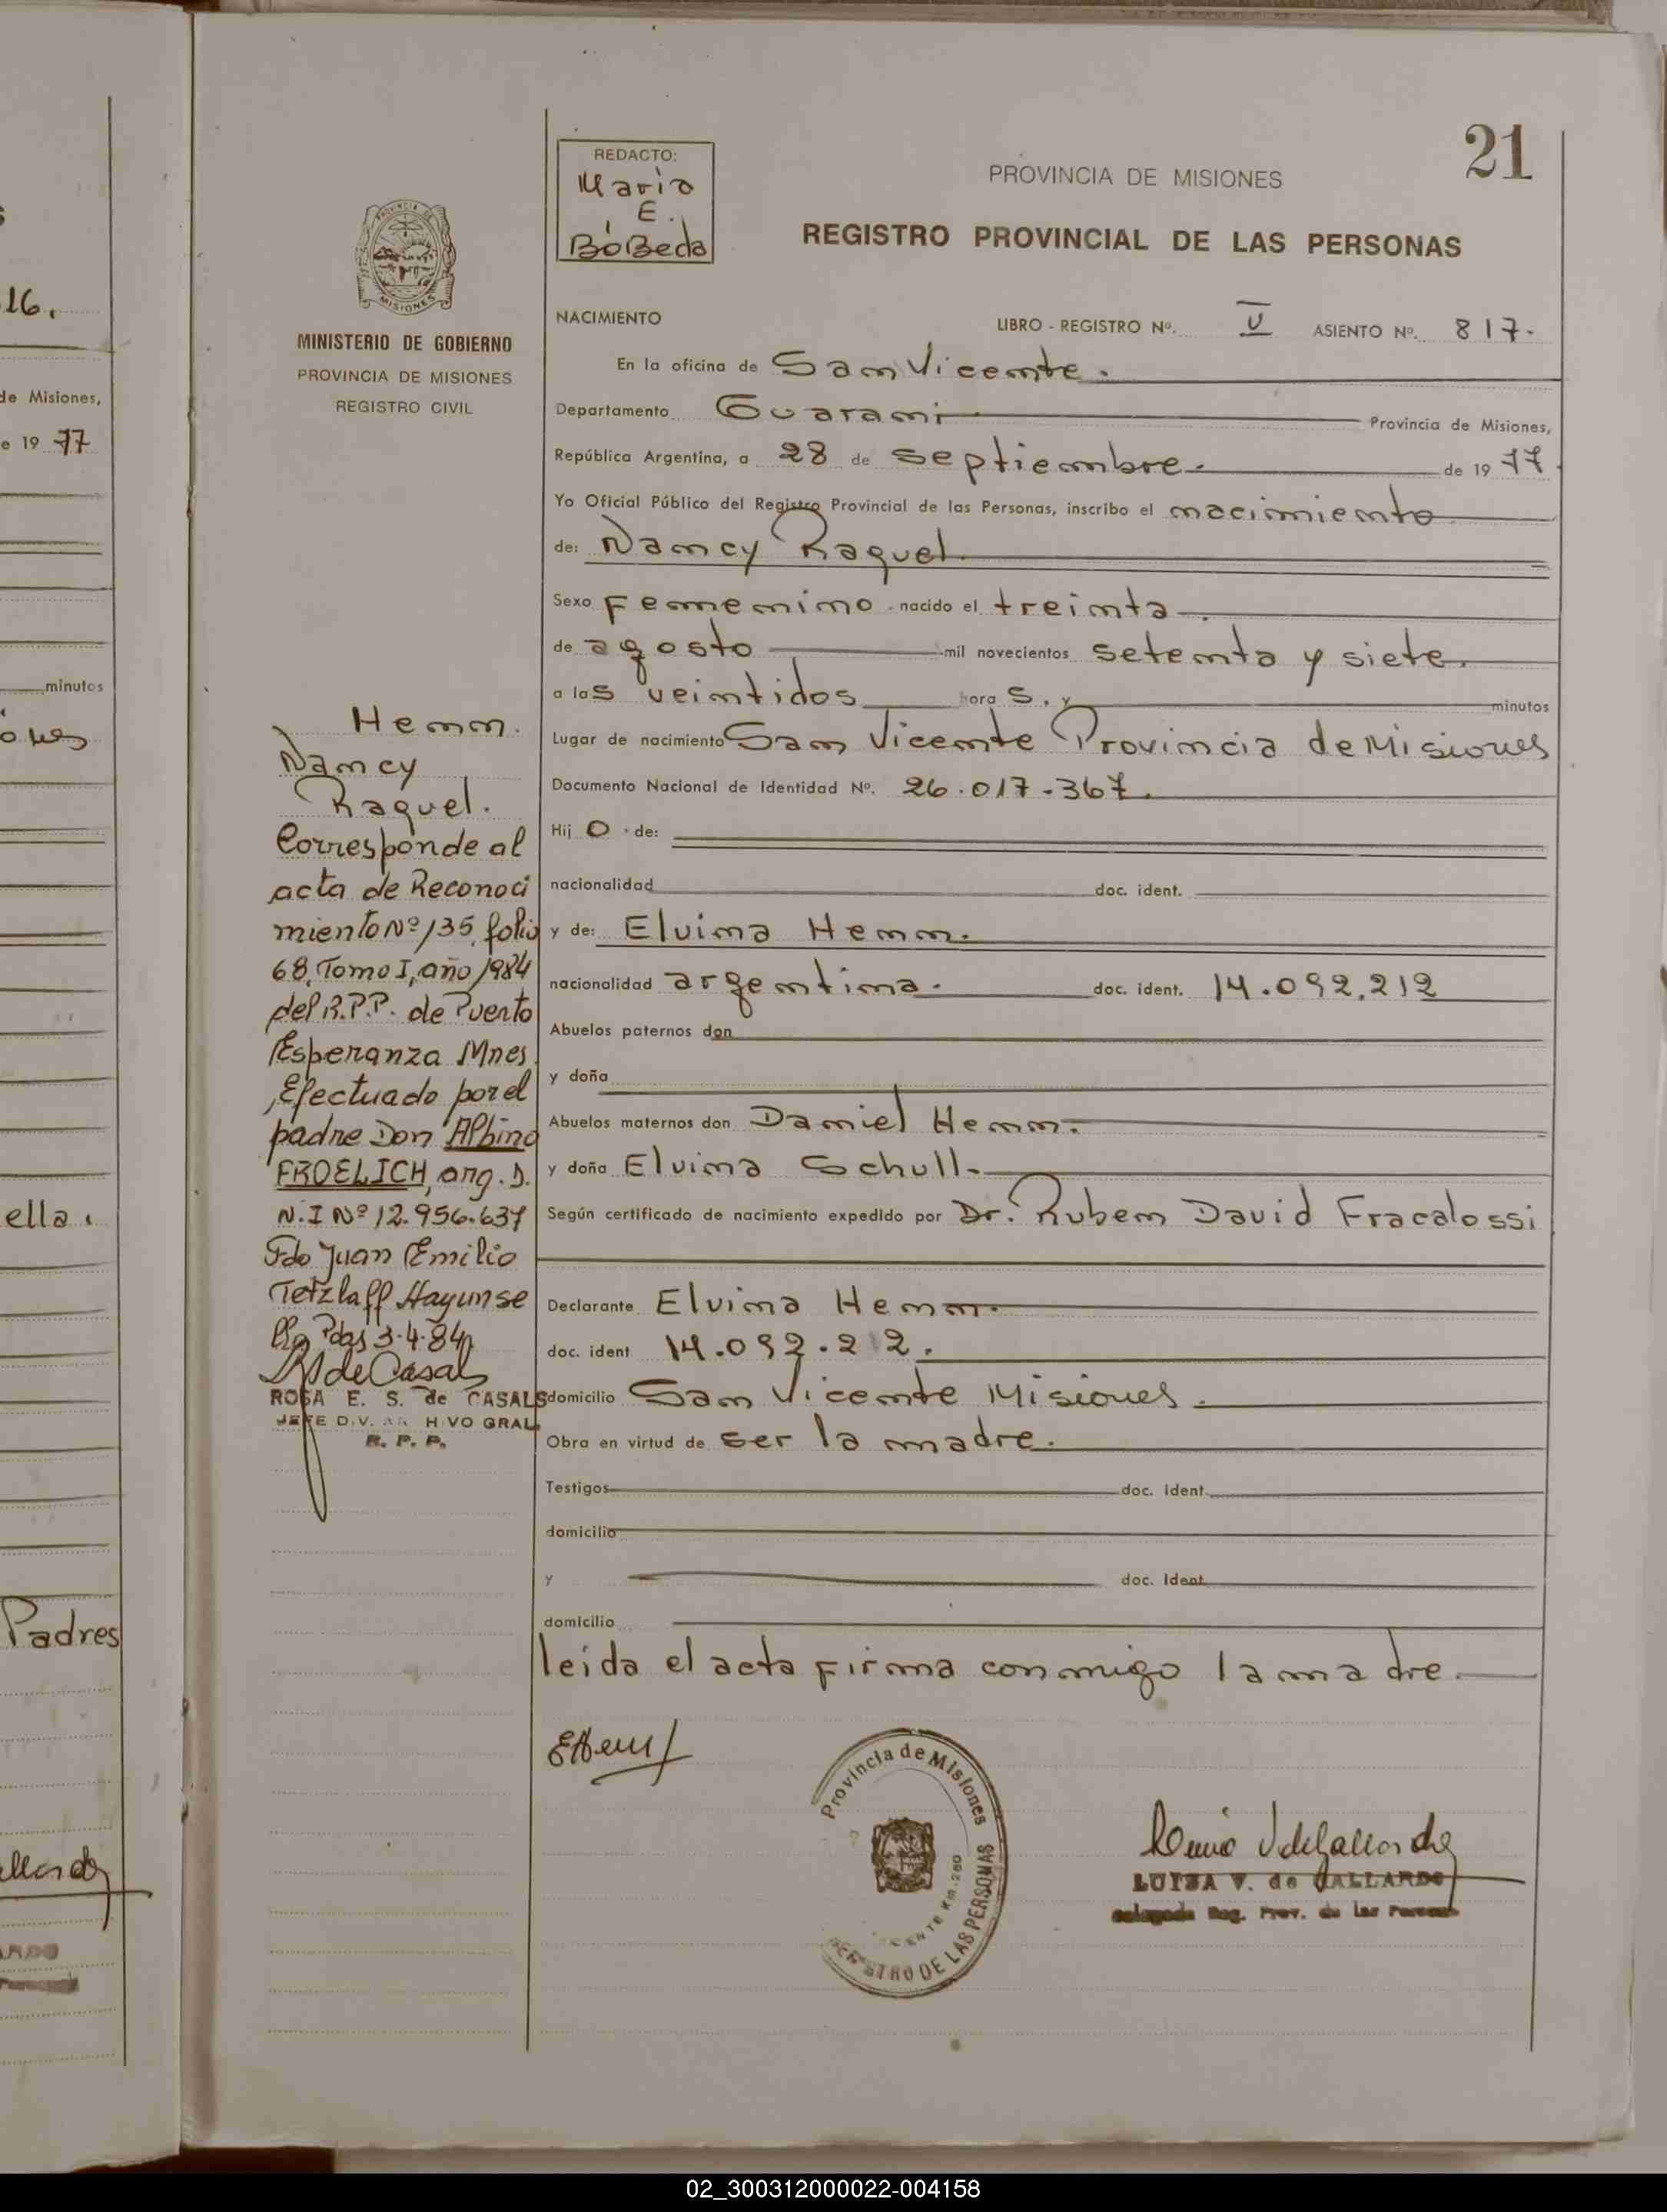 21
REDACTO:
Maria
E.
BóBeda
PROVINCIA DE MISIONES
REGISTRO PROVINCIAL DE LAS PERSONAS
PROVINCIA DE
MISIONES
MINISTERIO DE GOBIERNO
PROVINCIA DE MISIONES
REGISTRO CIVIL
NACIMIENTO LIBRO - REGISTRO Nº. V ASIENTO Nº. 817.
En la oficina de San Vicente.
Departamento Guarani Provincia de Misiones,
República Argentina, a 28 de septiembre. de 1977.
Yo Oficial Público del Registro Provincial de las Personas, inscribo el nacimiento
de: Nancy Raquel.
Sexo Femenino. nacido el treinta.
de agosto mil novecientos setenta y siete.
a las veintidos horas. y minutos
Lugar de nacimiento San Vicente Provincia de Misiones
Documento Nacional de Identidad Nº. 26.017.367.
Hijo. de:
nacionalidad doc. ident.
y de: Elvina Henn.
nacionalidad argentina. doc. ident. 14.092.212
Abuelos paternos don
y doña
Abuelos maternos don Daniel Henn.
y doña Elvina Schull.
Según certificado de nacimiento expedido por Dr. Ruben David Fracalossi
Declarante Elvina Henn.
doc. ident. 14.092.212.
domicilio San Vicente Misiones.
Obra en virtud de ser la madre.
Testigos doc. ident.
domicilio
y doc. Ident.
domicilio
leida el acta firma conmigo la madre.
EHenn
Provincia de Misiones
REGISTRO DE LAS PERSONAS
LUISA V. de GALLARDO
Delegada Reg. Prov. de las Personas
Henn.
Nancy
Raquel.
Corresponde al
acta de Reconoci
miento Nº 135, folio
68, Tomo I, año 1984
del R.P.P. de Puerto
Esperanza Mnes.
Efectuado por el
padre Don Albino
FROELICH, arg. D.
N.I Nº 12.956.637
Fdo Juan Emilio
Tetzlaff Hay un se
llo Pdas 3.4.84
RSdeCasals
ROSA E. S. de CASALS
JEFE DIV. ARCHIVO GRAL.
R. P. P.
16.
de Misiones,
e 19 77
minutos
ella.
Padres
02_300312000022-004158